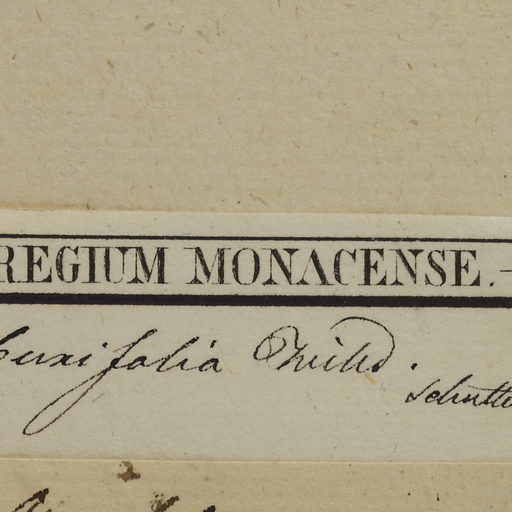 REGIUM MONACENSE. —
buxifolia Willd.